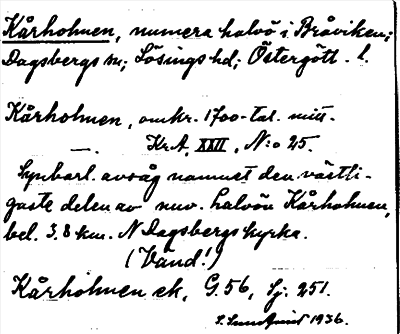 Kårholmen, numera halvö i Bråviken;
Dagsbergs sn; Lösings hd; Östergötl. l.
Kårholmen, omkr. 1700-tal. mitt.
—. Kr.A. XXII, N:o 25.
Synbarl. avsåg namnet den västli-
gaste delen av nuv. halvön Kårholmen,
bel. 3.8 km. N Dagsbergs kyrka.
(Vänd!)
Kårholmen ek, G. 56, Sj: 251.
1936.